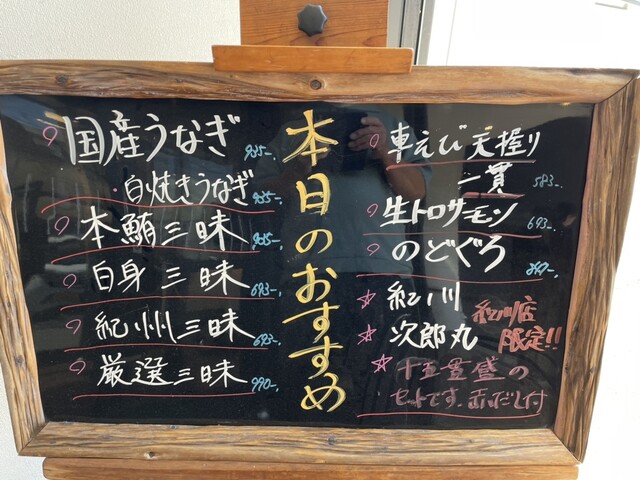 本日のおすすめ
国産うなぎ 935-.
・白焼きうなぎ 935-.
本鮪三昧 935-.
白身三昧 693-.
紀州三昧 693-.
厳選三昧 990-.
車えび天握り
二貫 583-.
生トロサーモン 693-.
のどぐろ
☆紀ノ川
☆次郎丸
紀ノ川店
限定!!
☆十五貫盛の
セットです。赤だし付